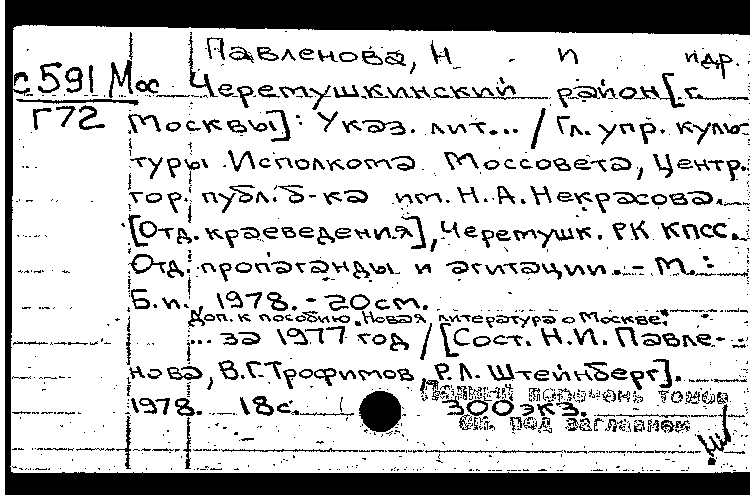 Павленова, Н И идр.
с591 Мос Черемушкинский район [г.
Г72 Москвы]: Указ. лит... / Гл. упр. куль-
туры Исполкома Моссовета, Центр.
гор. публ. б-ка им. Н. А. Некрасова.
[Отд. краеведения], Черемушк. РК КПСС.
Отд. пропаганды и агитации. - М.:
Б. и., 1978. - 20см.
Доп. к пособию "Новая литература о Москве"
... за 1977 год / [Сост. Н. И. Павле-
нова, В. Г. Трофимов, Р. Л. Штейнберг].
1978. 18с. 300экз.
Полный перечень томов
см. под заглавием